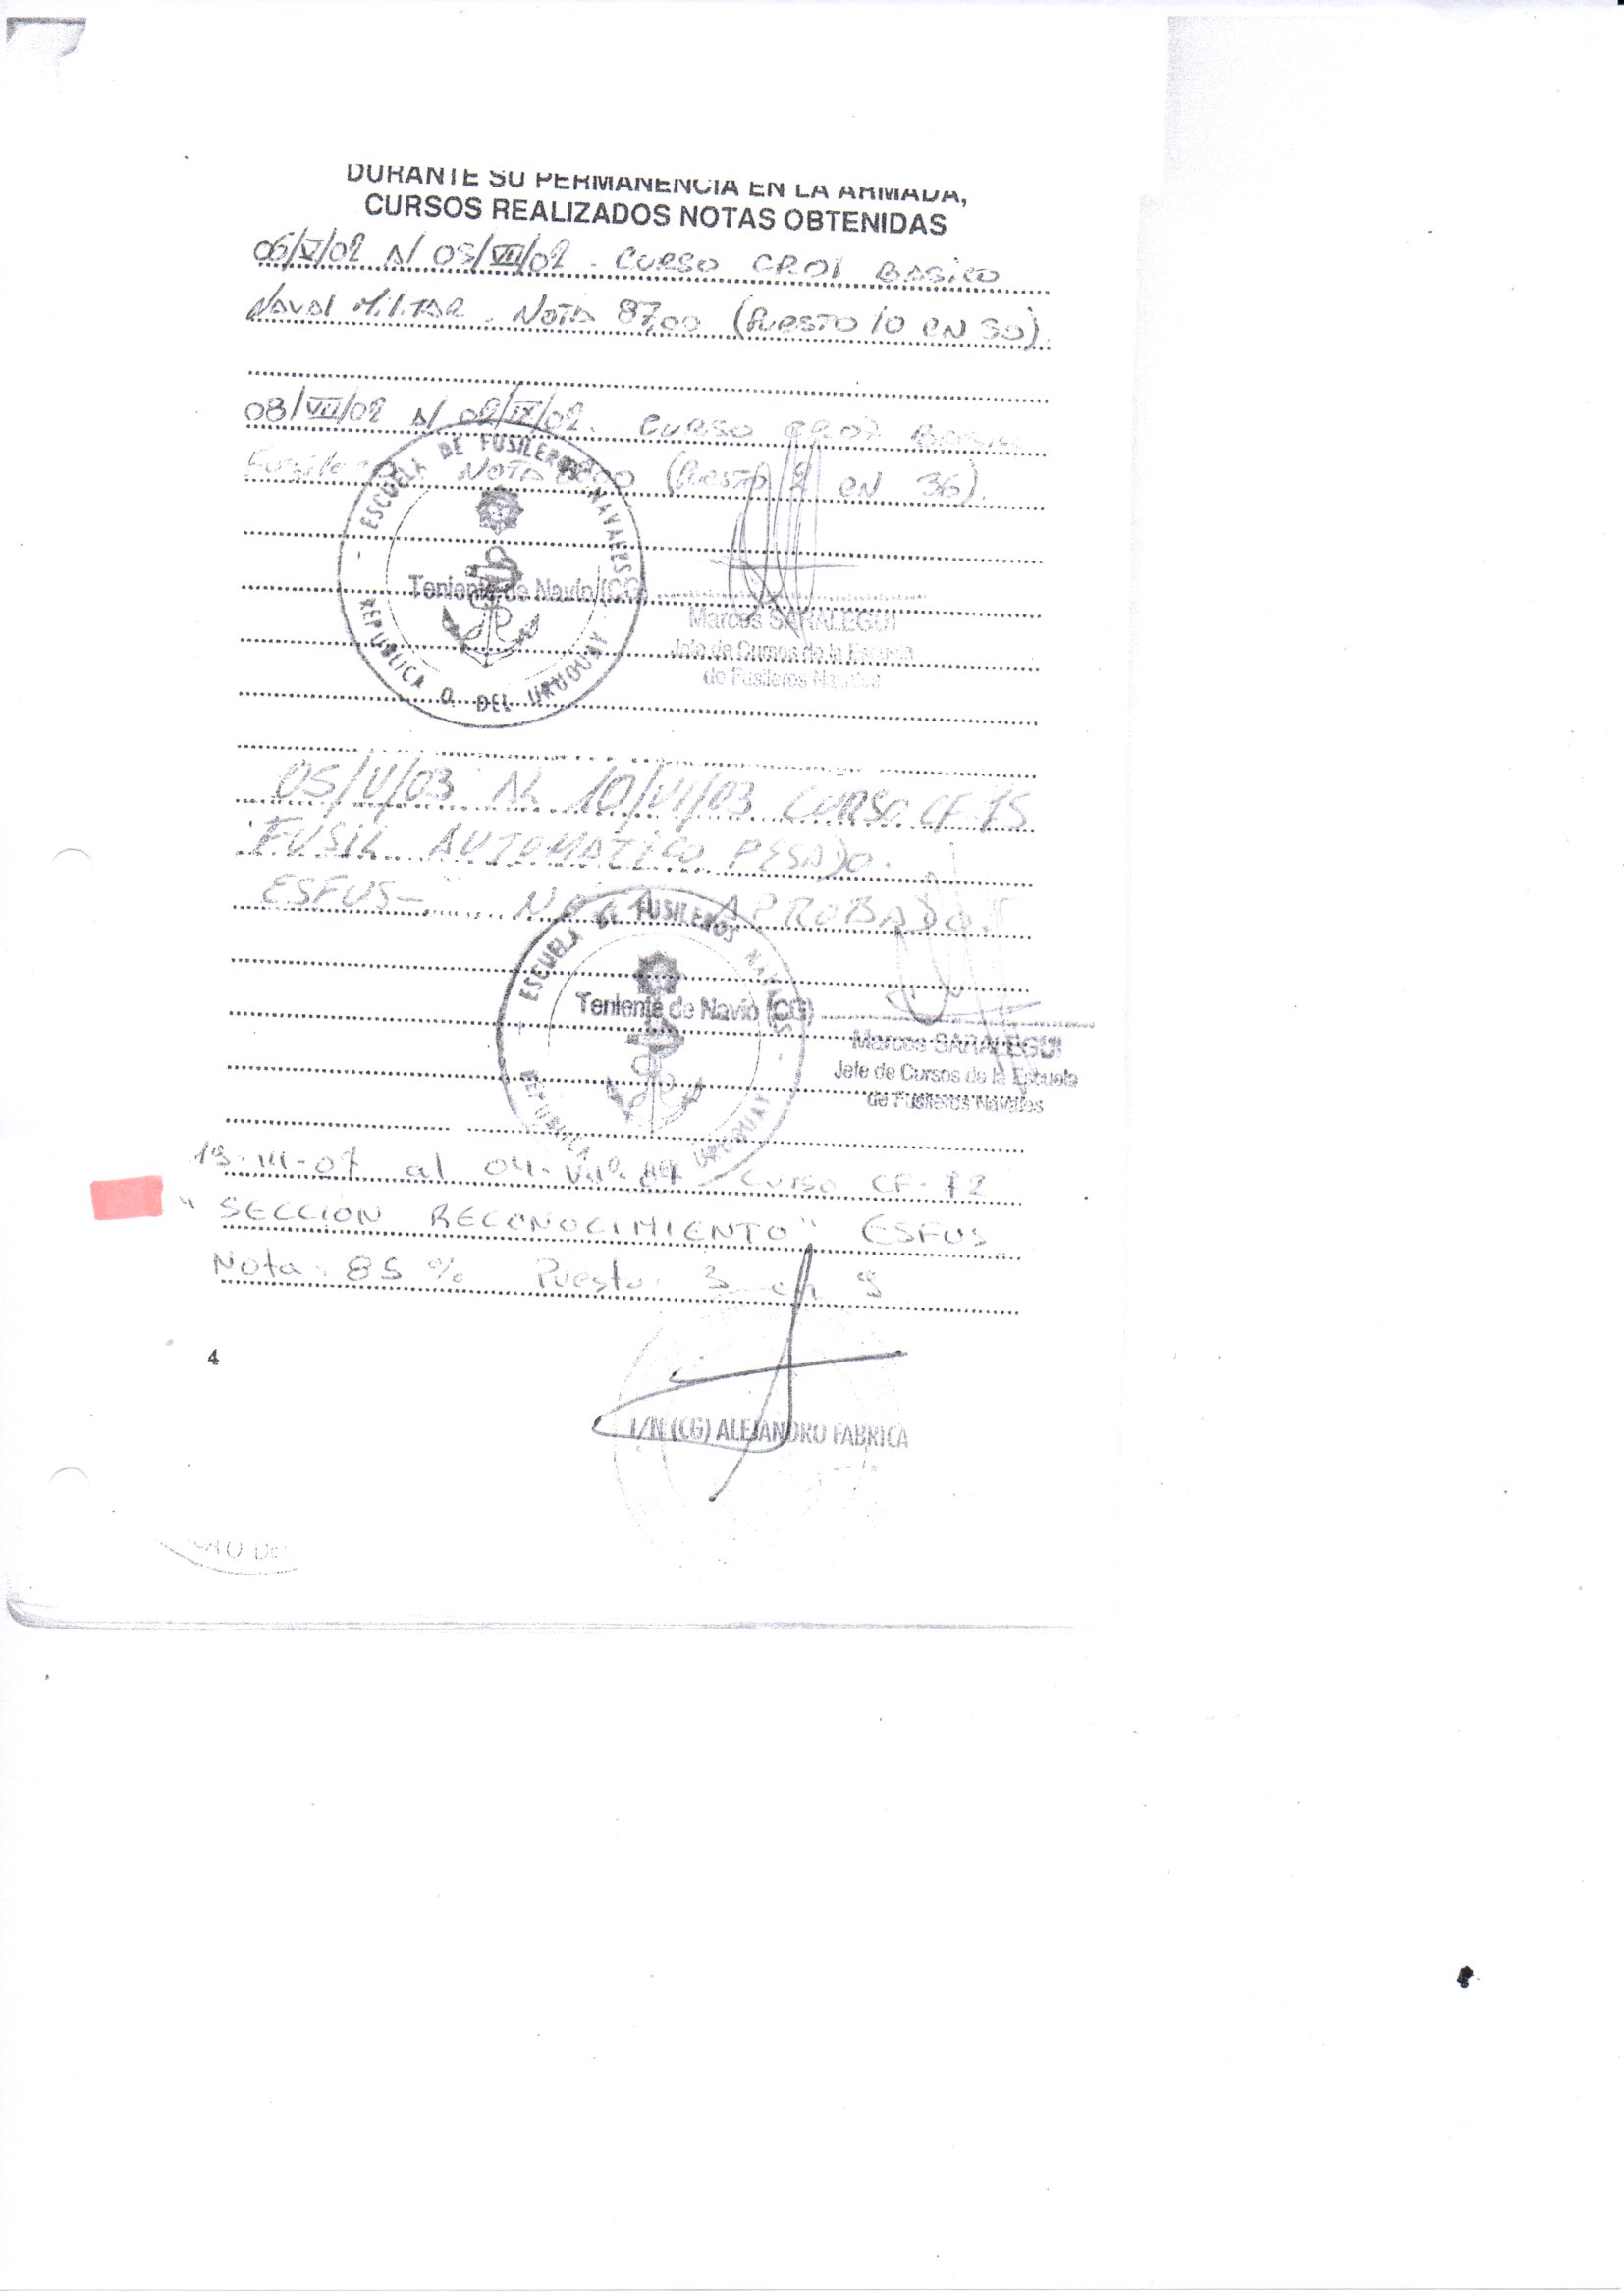 DURANTE SU PERMANENCIA EN LA ARMADA,
CURSOS REALIZADOS NOTAS OBTENIDAS
06/V/02 Al 05/VII/02 - CURSO CR01 BASICO
NAVAL MILITAR. NOTA 87,00 (PUESTO 10 EN 50).
08/VII/02 Al 02/IX/02. CURSO
NOTA (PUESTO 2 EN 36).
ESCUELA DE FUSILEROS NAVALES
REPUBLICA O. DEL URUGUAY
Teniente de Navío (CG)
Marcos SARALEGUI
Jefe de Cursos de la Escuela
de Fusileros Navales
05/V/03 AL 10/VI/03 CURSO CF-75
FUSIL AUTOMATICO PESADO.
ESFUS- NOTA APROBADO.
ESCUELA DE FUSILEROS NAVALES
REPUBLICA URUGUAY
Teniente de Navío (CG)
Marcos SARALEGUI
Jefe de Cursos de la Escuela
de Fusileros Navales
19-III-07 al 04- Curso CF-72
"SECCION RECONOCIMIENTO" ESFUS
Nota: 85 % Puesto: 3 en 9
4
(CG) ALEJANDRO FABRICA